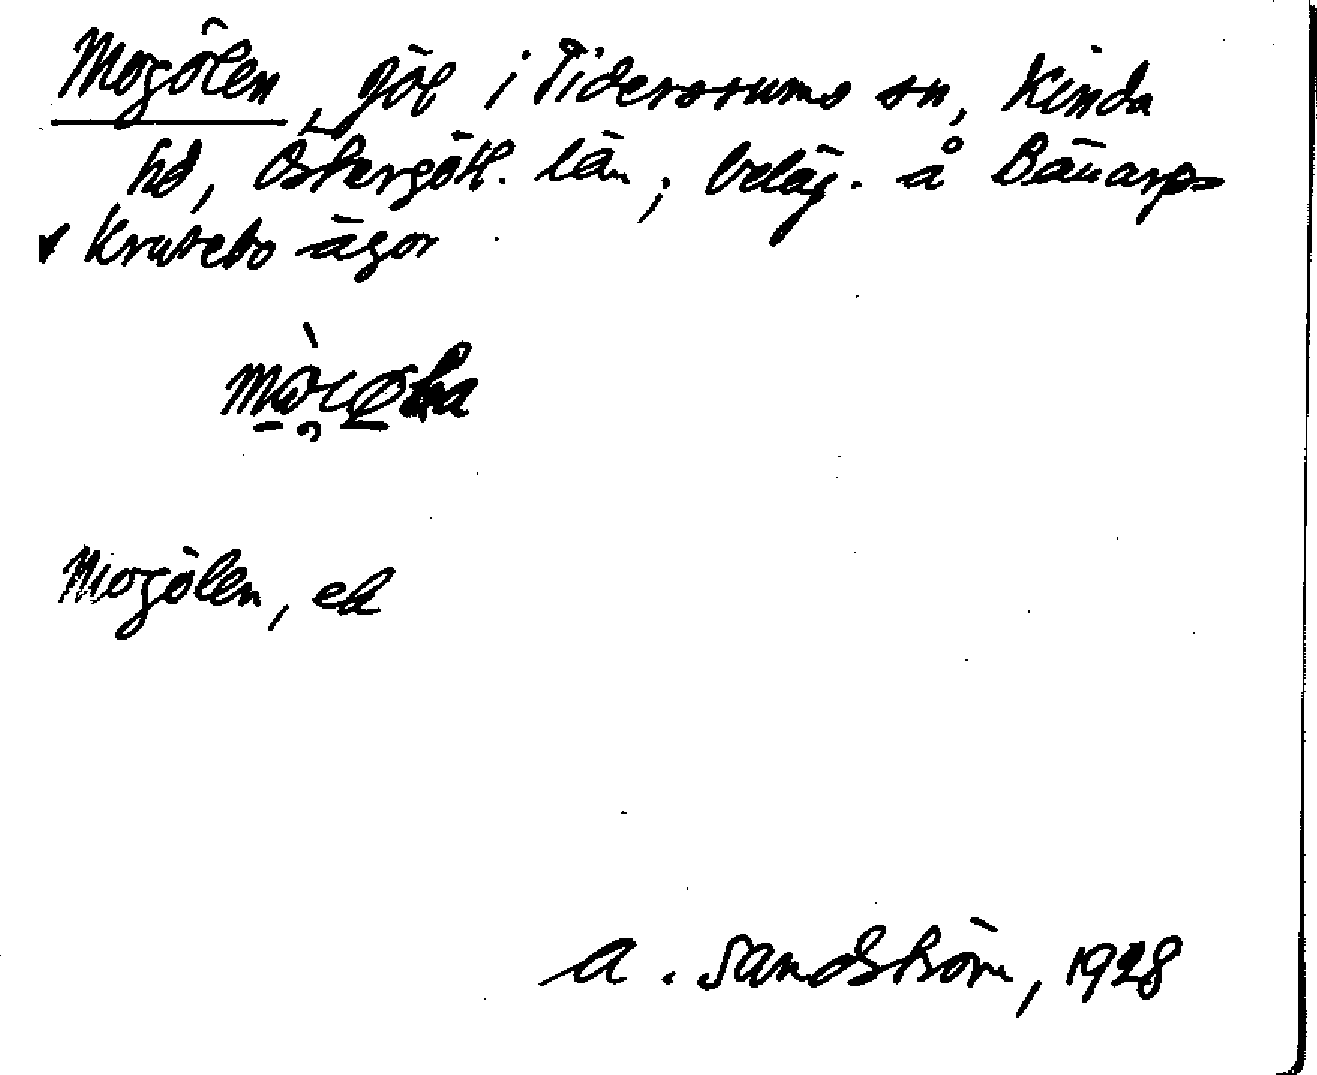 Mogölen, göl i Tidersrums sn, Kinda
hd, Östergötl. län; beläg. å Bänarps
v Krabebo ägor
Mogölen, ek
A. Sandström, 1928